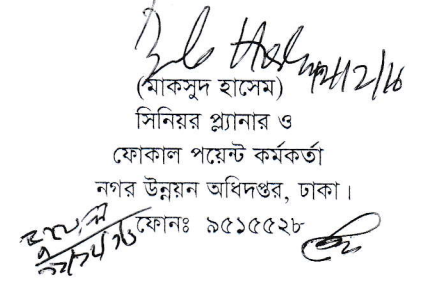 (মাকসুদ হাসেম)
সিনিয়র প্ল্যানার ও
ফোকাল পয়েন্ট কর্মকর্তা
নগর উন্নয়ন অধিদপ্তর, ঢাকা।
ফোনঃ ৯৫১৫৫২৮